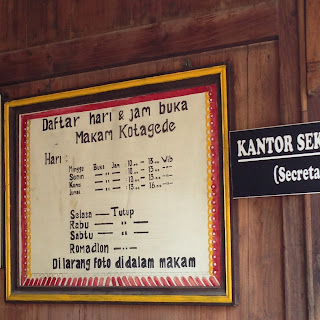 Daftar hari & jam buka
Makam Kotagede
Hari :
Minggu Buka Jam 10.00 - 13.00 Wib
Senin — " — " — 10.00 - 13.00 — " —
Kamis — " — " — 10.00 - 13.00 — " —
Jumat — " — " — 13.00 - 16.00 — " —
Selasa — Tutup
Rabu — " —
Sabtu — " —
Romadlon — " —
Di larang foto di dalam makam
KANTOR SEK
(Secreta